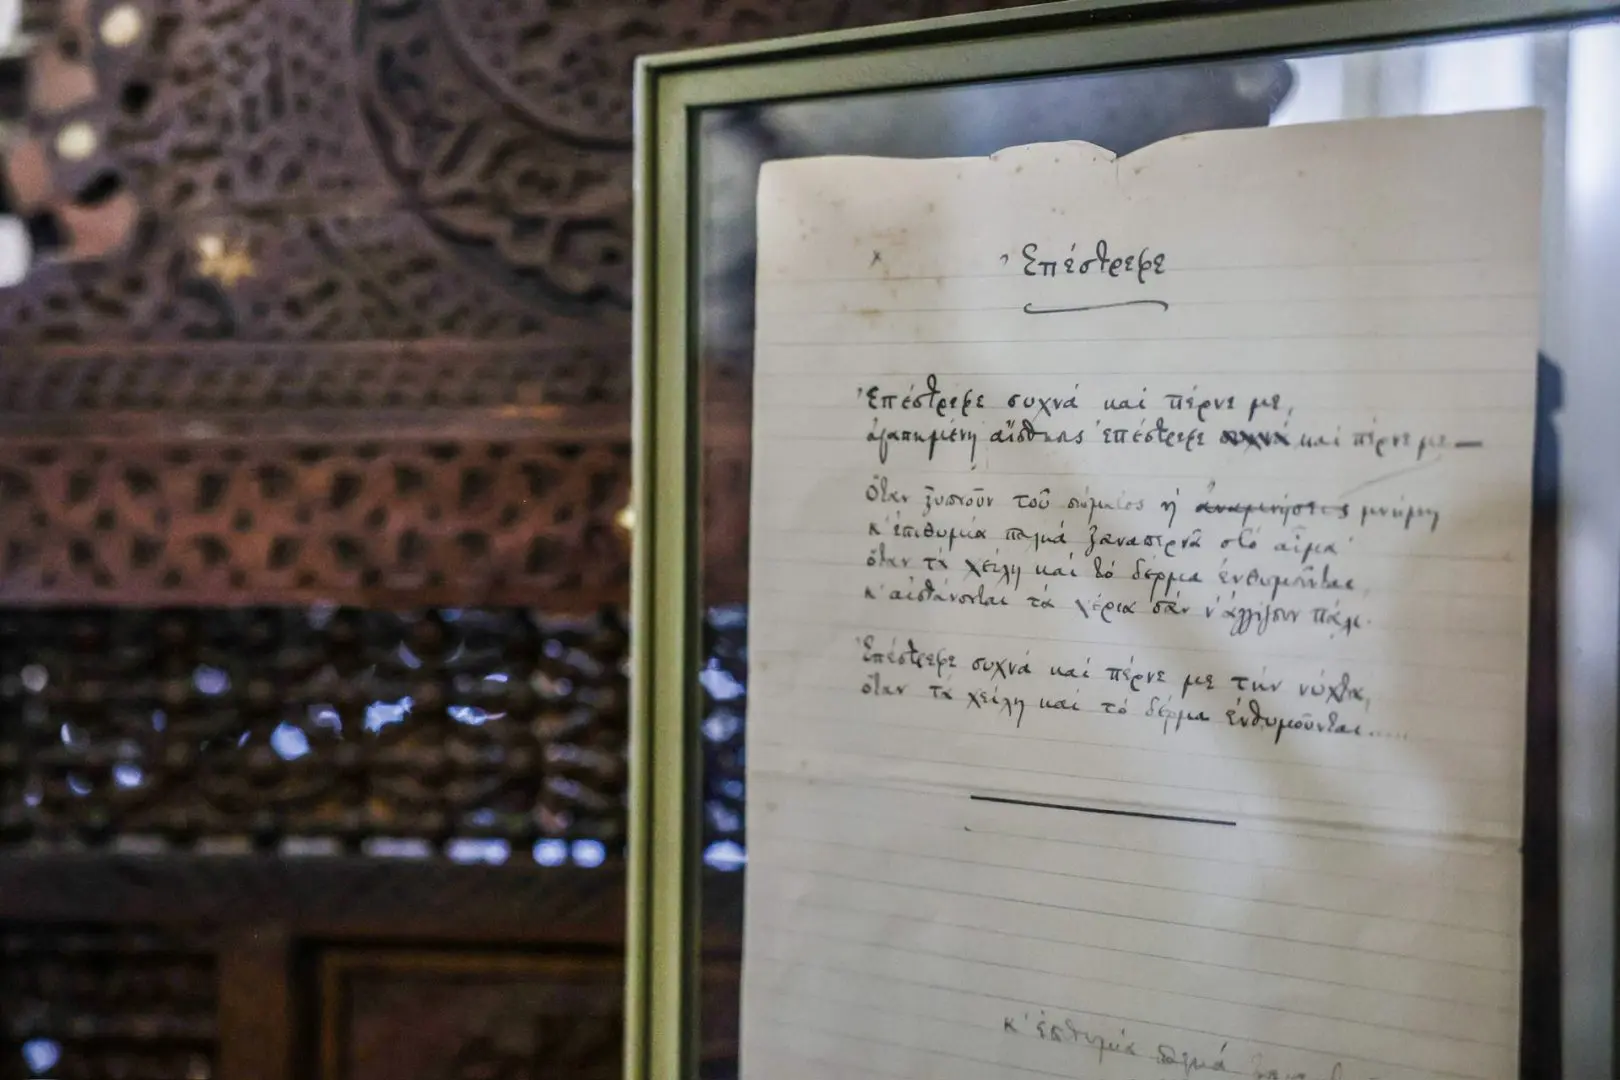 Ἐπέστρεφε
Ἐπέστρεφε συχνά καί πέρνε με,
ἀγαπημένη αἴσθησις ἐπέστρεφε συχνά καί πέρνε με —
ὅταν ξυπνοῦν τοῦ σώματος ἡ ἀναμνήσεις μνήμη
κ' ἐπιθυμία παληά ξαναπερνᾶ στό αἷμα·
ὅταν τά χείλη καί τό δέρμα ἐνθυμοῦνται,
κ' αἰσθάνονται τά χέρια σάν ν' ἀγγίζουν πάλι.
Ἐπέστρεφε συχνά καί πέρνε με τήν νύχτα,
ὅταν τά χείλη καί τό δέρμα ἐνθυμοῦνται.....
κ' ἐπιθυμία παληά